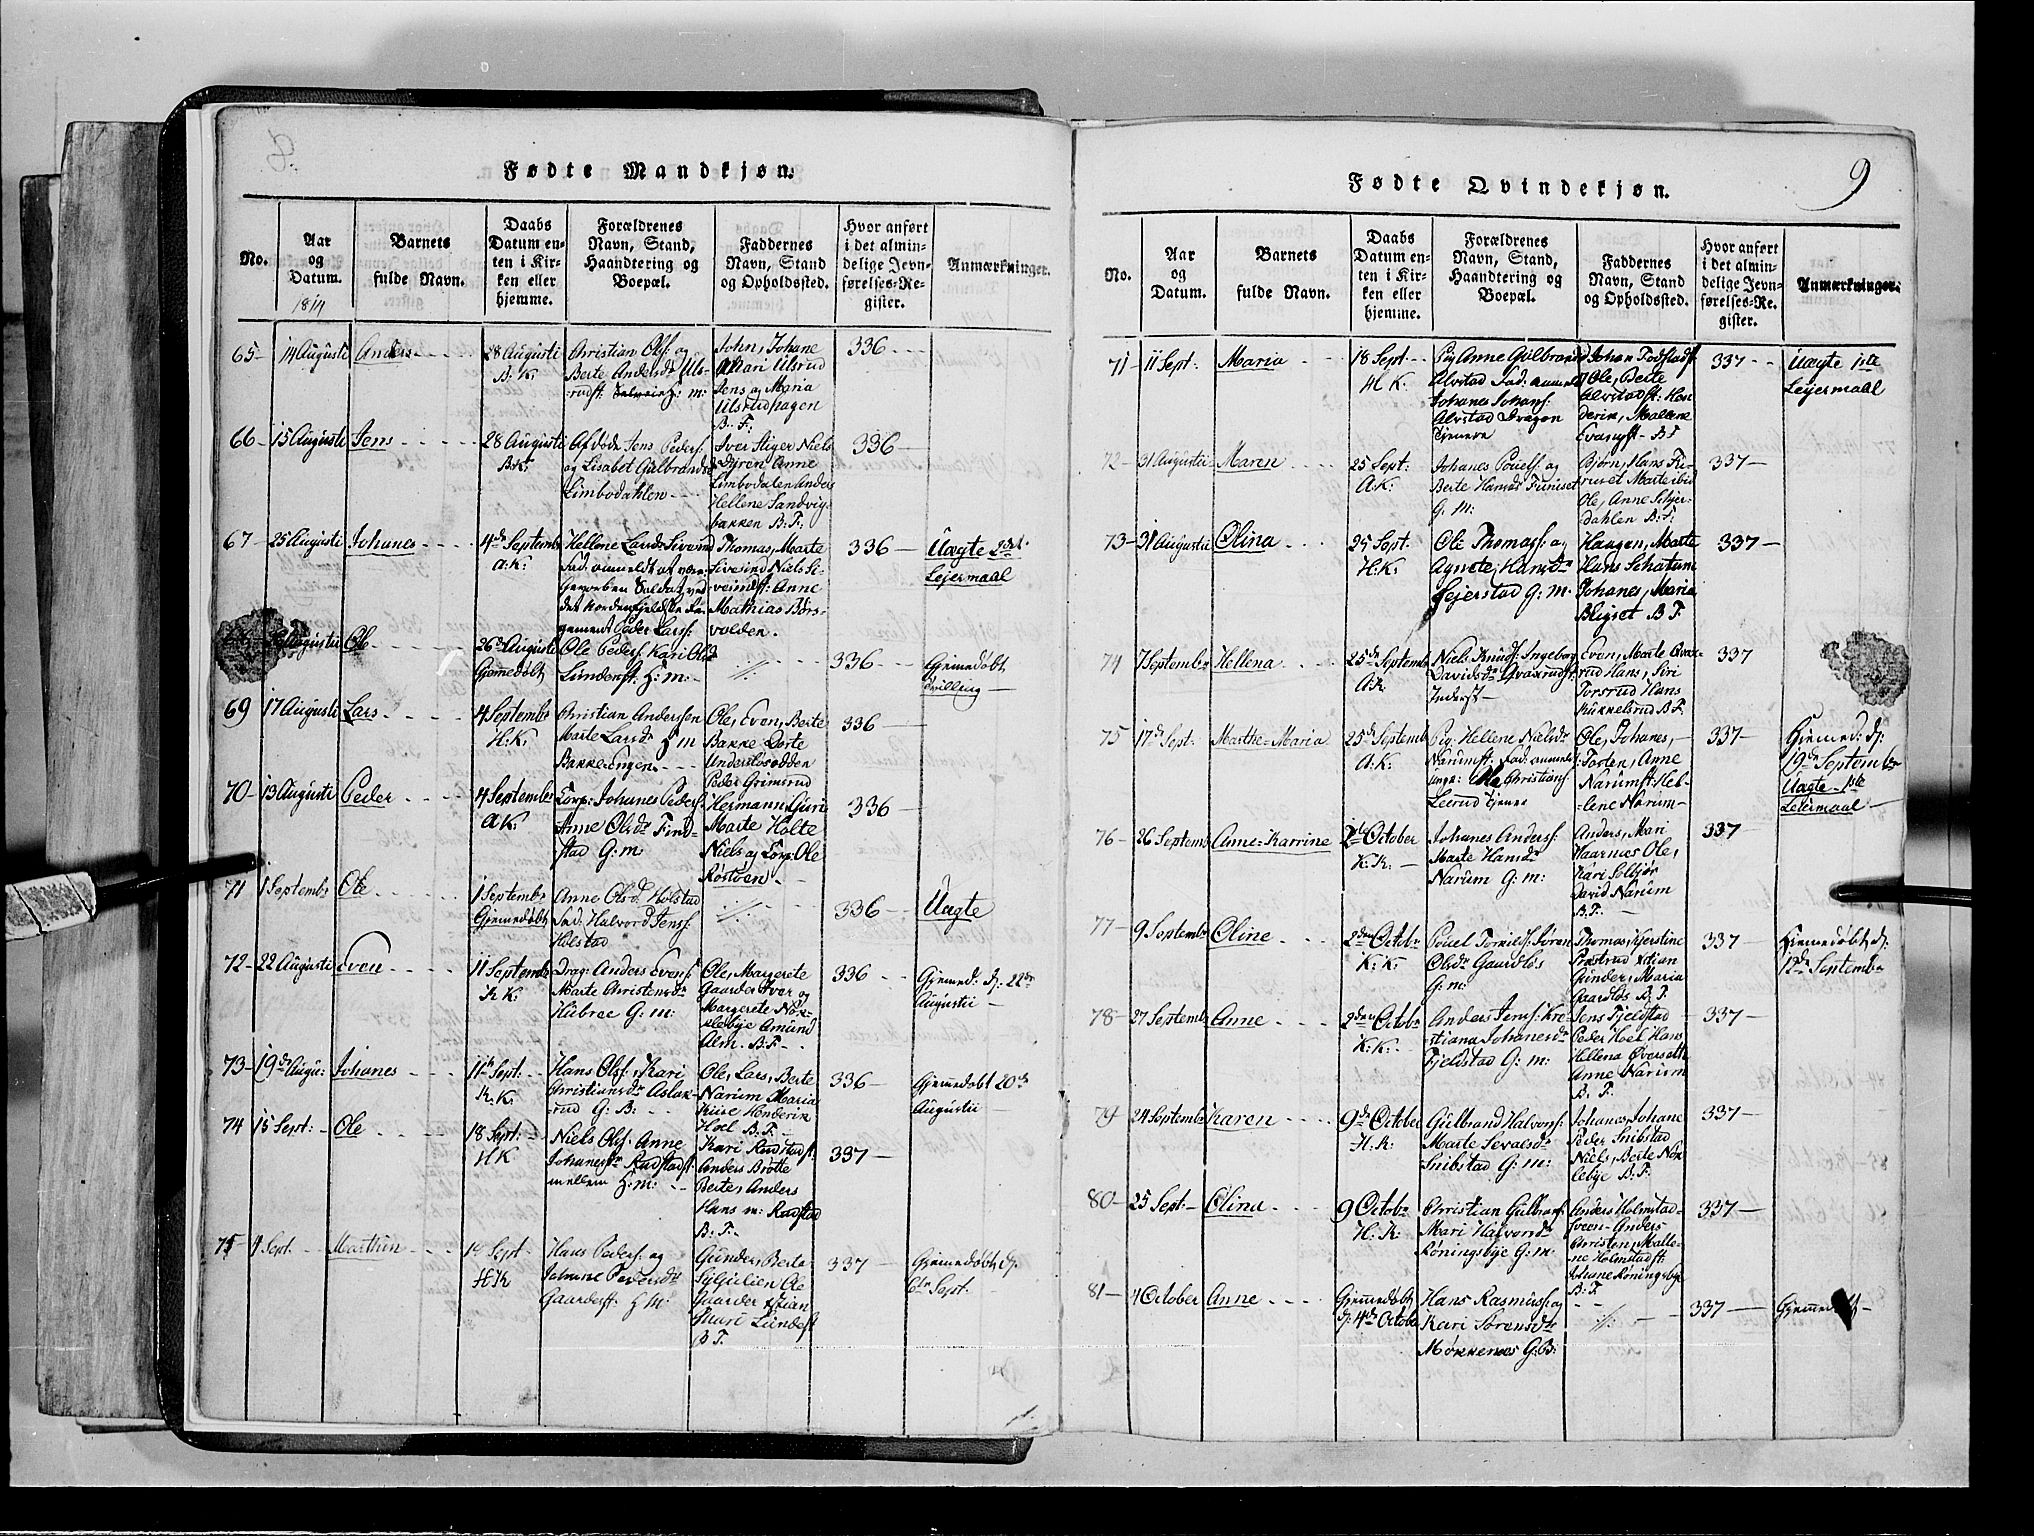 8.
Fødte Mandkjøn.
No.
Aar
og
Datum.
1814
Barnets
fulde Navn.
Daabs
Datum en-
ten i Kir-
ken eller
hjemme.
Forældrenes
Navn, Stand,
Haandtering og
Boepæl.
Faddernes
Navn, Stand
og Opholdssted.
Hvor anført
i det almin-
delige Jevn-
førelses-Re-
gister.
Anmærkninger.
65 14 Augusti Anders
28 Augusti
B. K.
Christian Ols: og
Berte Andersd: Uls-
rudst: H: m:
John, Johane
Mari Ulsrud
Jens og Maria
Ulsrudhagen
B. F:
336
66 15 Augusti Jens
28 Augusti
B: K:
Afdøde Jens Peders:
og Lisabet Gulbrandsd
Limbodahlen
Iver Stiger Niels
Dyren Anne
Limbodalen Anders
Hellene Sandvig-
bakken B: F:
336
67 25 Augusti Johanes
4de Septembr
A: K:
Hellene Larsd: Sivesind
Fad: anmeldt at være
Gevorben Soldat ved
det Nordenfjeldske Re-
gement Peder Lars:
Thomas, Marte
Sivesind Niels Si-
vesindst: Anne
Mathias Børs-
volden.
336
Uægte 2det
Leiermaal
Augusti Ole
26de Augusti
Gjemedøbt
Ole Peders: Kari Olsd
Lundenst: H: m:
336
Gjemedøbt
Tvilling
69 17 Augusti Lars
4 Septembr
H: K:
Christian Andersen
Marte Larsd H m
Bakke Engen
Ole, Even, Berte
Bakke Dorte
Understosødden
Peder Grimsrud
336
70 13 Augusti Peder
4 Septembr
A K:
Corp: Johanes Peders:
Anne Olsdr Find-
stad G: m
Hermann, Guru
Marte Holte
Niels og Corp: Ole
Røstøen
336
71 1 Septembr Ole
1 Septembr
Gjemedøbt
Anne Olsd Holstad
Fad: Halvord Jens:
Holstad
336
Uægte
72 22 Augusti Even
11 Septembr
K K:
Drag: Anders Evens:
Marte Christensdr
Hubree G: m:
Ole, Margerete
Gaarder Iver og
Margerete Nøk-
lebye Amund
Alm. B. F.
336
Gjemed: d: 22de
Augustii
73 19de Augu: Johanes
11te Sept.
K. K:
Hans Ols: Kari
Christiansdr Aslak-
rud G: B:
Ole, Lars, Berte
Narum Maria
Kiise Henderik
Hoel B. F.
336
Gjemedøbt 20de
Augustii
74 15 Sept: Ole
18 Sept:
H K
Niels Ols: Anne
Johanesdr Radstadst:
mellem H: m:
Kari Radstadst:
Anders Brøtte
Berte, Anders
Hans m: Radstad
B: F.
337
75 4 Sept: Marthin
18 Sept
H K
Hans Peders: og
Johanne Pedersdr
Gaarderst: H M:
Gunder, Berte
Ole
Gaarder Xstian
Mari Lundest
B F.
337
Gjemedøbt d:
6te Sept:
9
Fødte Qvindekjøn.
No.
Aar
og
Datum.
Barnets
fulde Navn.
Daabs
Datum en-
ten i Kir-
ken eller
hjemme.
Forældrenes
Navn, Stand,
Haandtering og
Boepæl.
Faddernes
Navn, Stand
og Opholdssted.
Hvor anført
i det almin-
delige Jevn-
førelses-Re-
gister.
Anmærkninger.
71 11 Sept: Maria
18 Sept:
H K:
Pig Anne Gulbrand
Alvstad Fad: anmel
Johanes Johans:
Alvstad Dragon
Tjenere
Johan Todstadst
Ole, Berte
Alvstadst: Hen
derik, Mallene
B F
337
Uægte 1ste
Leiermaal
72 31 Augustii Maren
25 Sept:
A: K:
Johanes Pouels: og
Berte Hansdr Furuset
G: m:
Bjørn, Hans Fu-
ruset Marte ibid
Ole, Anne Schjer-
dahlen B: F:
337
73 31 Augustii Olina
25 Sept.
H: K:
Ole Thomas: og
Agnete Hansdr
Sejerstad G: m.
Haagen, Marte
Hans Schatum
Johanes, Maria
Bligset B F.
337
74 7 September Hellena
25de Septemb
A: K:
Niels Knuds: Ingeborg
Davidsdr Qvarudst
Inderst
Even, Marte Qva-
rud Hans, Siri
Torsrud Hans
Kukkelsrud B F.
337
75 17de Sept: Marthe Maria
25de Septemb
A: K.
Pig: Hellene Nielsdr
Narumst: Fad: anme
Unga: Ole Christians
Leirud Tjener
Ole, Johanes,
Torsten, Anne
Narumst: Hel-
lene Narum
337
Hjemed: d:
19de Septembr
Uægte 1ste
Leiermaal
76 26 Septemb Anne Karrine
2de October
K: K:
Johanes Anders:
Marte Hansdr
Narum G: m:
Anders, Mari
Haarnæs Ole,
Kari Solbjør
David Narum
B: F.
337
77 9 Septembr Oline
2den Octobr
K: K:
Pouel Tomilds: Søren
Olsdr Gaardløs
G: m:
Thomas, Kjerstine
Præstrud Xstian
Gunder, Maria
Gaardløs B. F.
337
Hjemedøbt d:
12de Septembr
78 27 Septembr Anne
2den Octobr
K: K:
Anders Jens: Kre-
stiana Johanesdr
Fjeldstad G: m:
Jens Fjeldstad
Peder Hoel Hans
Hellena Øversæth
Anne Narum
B: F.
337
79 24 Septembr Karen
9de October
H: K:
Gulbrand Halvors:
Marte Sevalsdr
Snibstad G: m:
Johanes, Johane
Peder Snibstad
Niels, Berte Nøk-
lebye B. F:
337
80 25 Sept: Olina
9 Octobr
H: K:
Christian Gulbrans:
Mari Halvorsdr
Røningsbye G: m.
Anders Holmstad-
sveen Anders
Christen, Malle-
ne Holmstadst:
Johane Røningsbye
B: F.
337
81 4 October Anne
Gjemedøbt
d: 4de Octobr
Hans Rasmus: og
Kari Sørensdr
Møkkenæs G: B:
337
Gjemedøbt